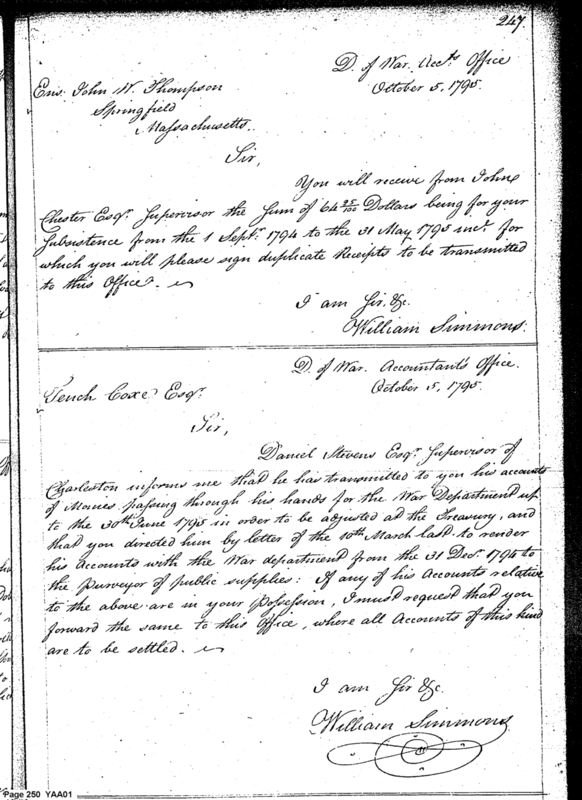 247.
D. of War. Acc.ts Office
October 5, 1795.
Ens. John W. Thompson
Springfield
Massachusetts.
Sir,
You will receive from John
Chester Esqr. Supervisor the Sum of 64 25/100 Dollars being for your
Subsistence from the 1 Septr. 1794 to the 31 May 1795 incl. for
which you will please sign duplicate Receipts to be transmitted
to this Office.
I am Sir, &c.
William Simmons.
D. of War. Accountant's Office.
October 5, 1795.
Tench Coxe Esqr.
Sir,
Daniel Stevens Esqr. Supervisor of
Charleston informs me that he has transmitted to you his accounts
of Monies passing through his hands for the War Department up
to the 30th June 1795 in order to be adjusted at the Treasury, and
that you directed him by letter of the 10th March last to render
his Accounts with the War department from the 31 Decr. 1794 to
the Purveyor of public supplies: If any of his Accounts relative
to the above are in your Possession, I must request that you
forward the same to this Office, where all Accounts of this kind
are to be settled.
I am Sir &c.
William Simmons
Page 250 YAA01